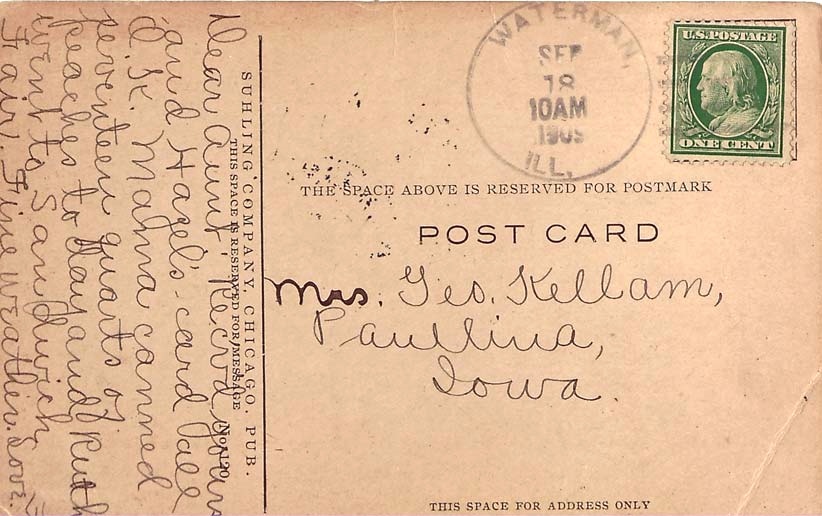 Dear Aunt Rec'vd yours
and Hazel's card all
O.K. Mama canned
seventeen quarts of
peaches to day and Ruth
went to Sandwich
Fair. Fine weather. Love.
SUHLING COMPANY, CHICAGO. PUB.
THIS SPACE IS RESERVED FOR MESSAGE
No. 120
WATERMAN,
SEP
18
10AM
1909
ILL.
U.S. POSTAGE
ONE CENT
THE SPACE ABOVE IS RESERVED FOR POSTMARK
POST CARD
Mrs. Geo. Kellam,
Paullina,
Iowa.
THIS SPACE FOR ADDRESS ONLY